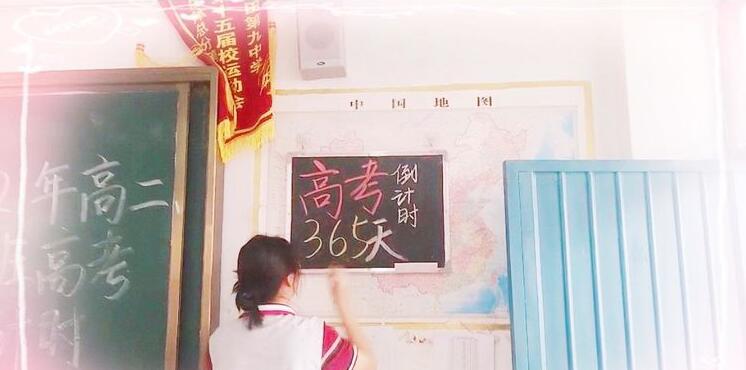 第九中学
十五届校运动会
中国地图
高考倒计时
365天
年高二
高考
时